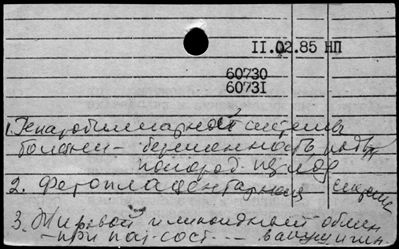 II.02.85 НП
60730
60731
1. Гепатобилиарной системы
болезни - беременность, роды
2. Фетоплацентарная система
3. Жировой и липоидный обмен
- при пат. сост. --